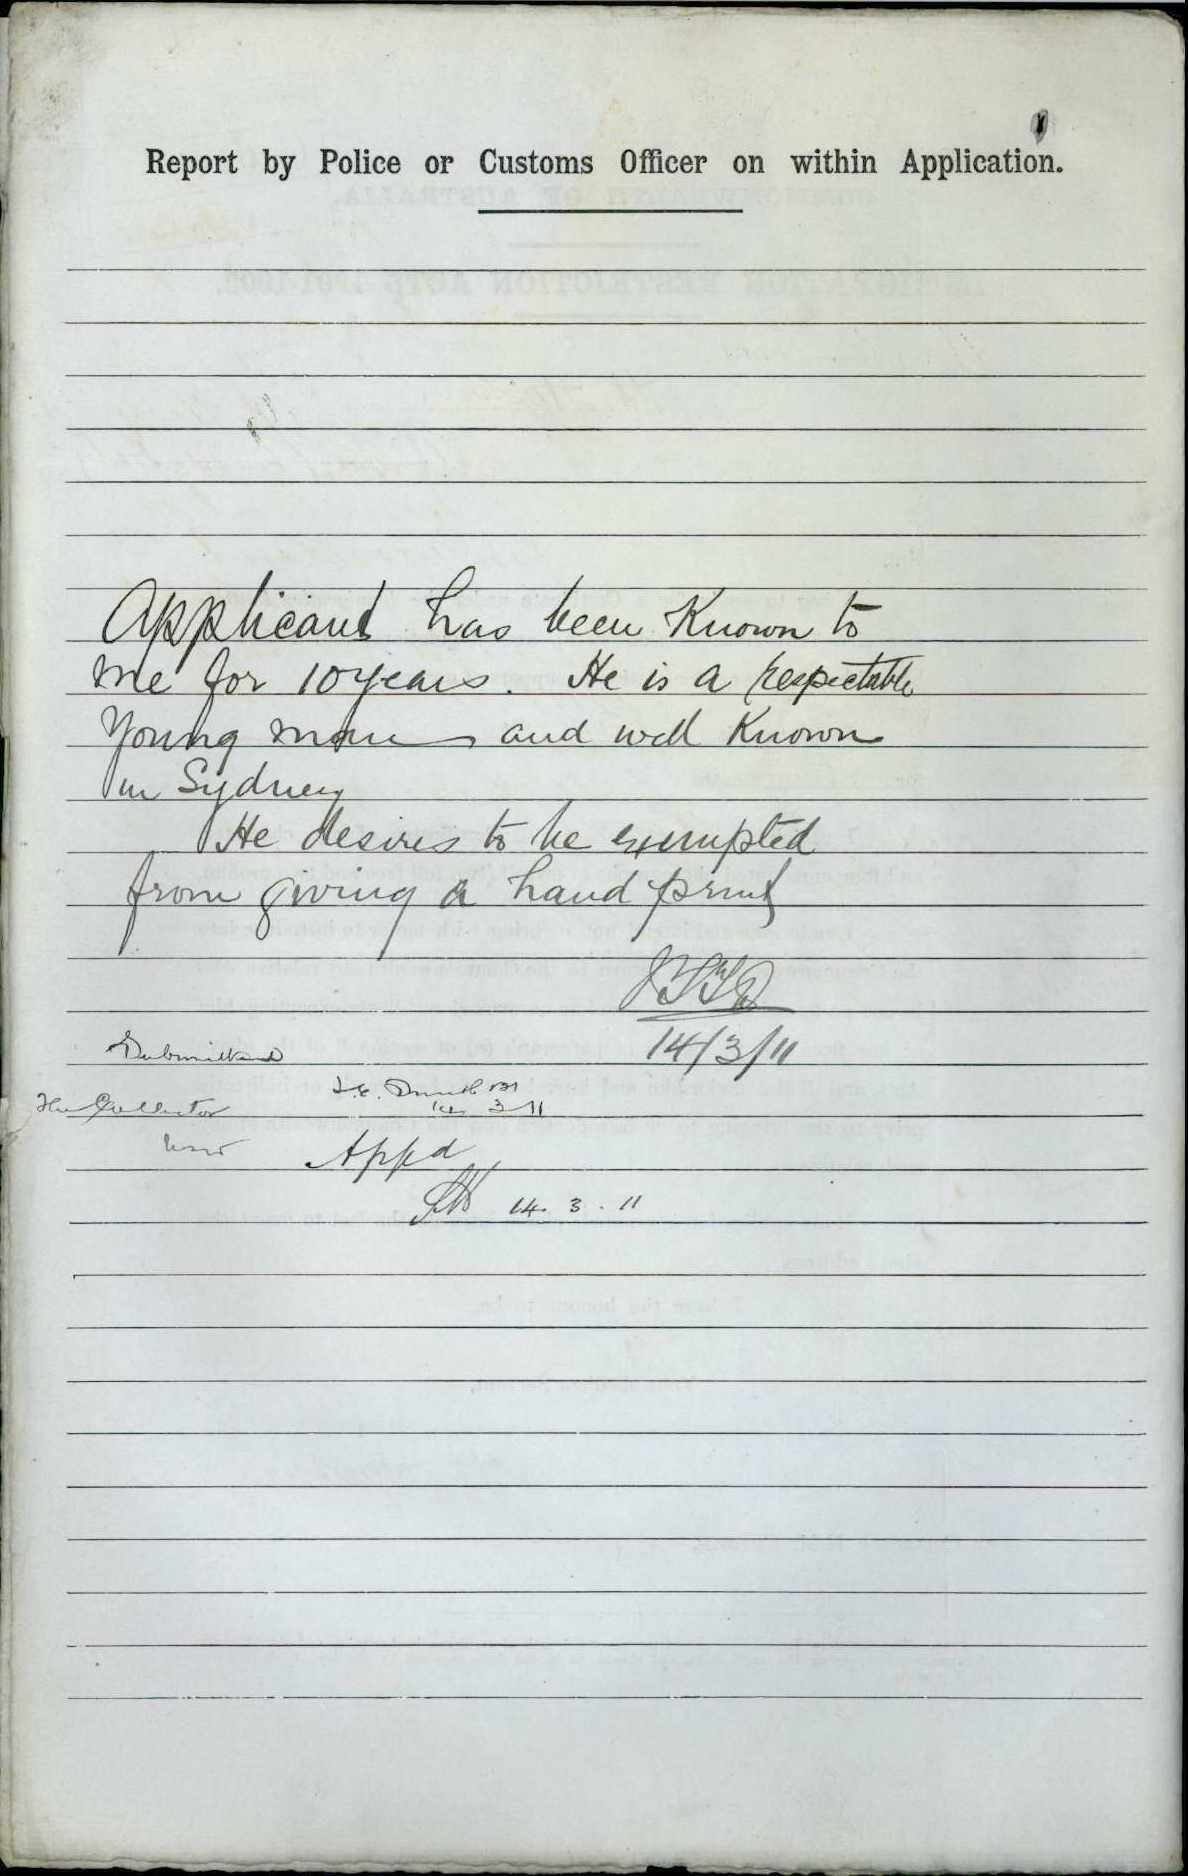 Report by Police or Customs Officer on within Application.
Applicant has been Known to
me for 10 years. He is a respectable
Young man and well Known
in Sydney
He desires to be exempted
from giving a hand print
14/3/11
Submitted
The Collector
14 3 11
NSW
Appd
14. 3. 11